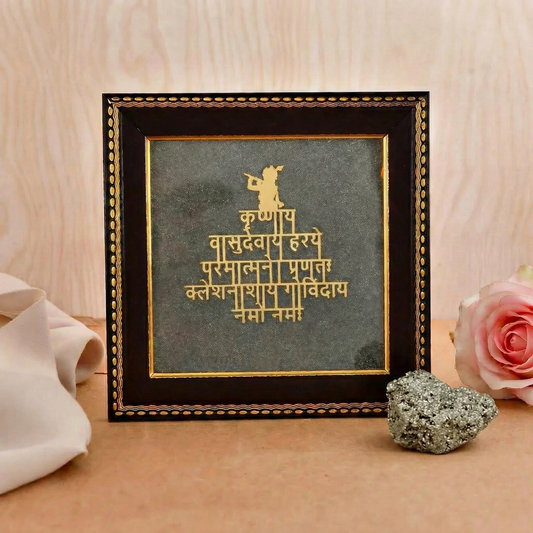 कृष्णाय
वासुदेवाय हरये
परमात्मने। प्रणतः
क्लेशनाशाय गोविंदाय
नमो नमः